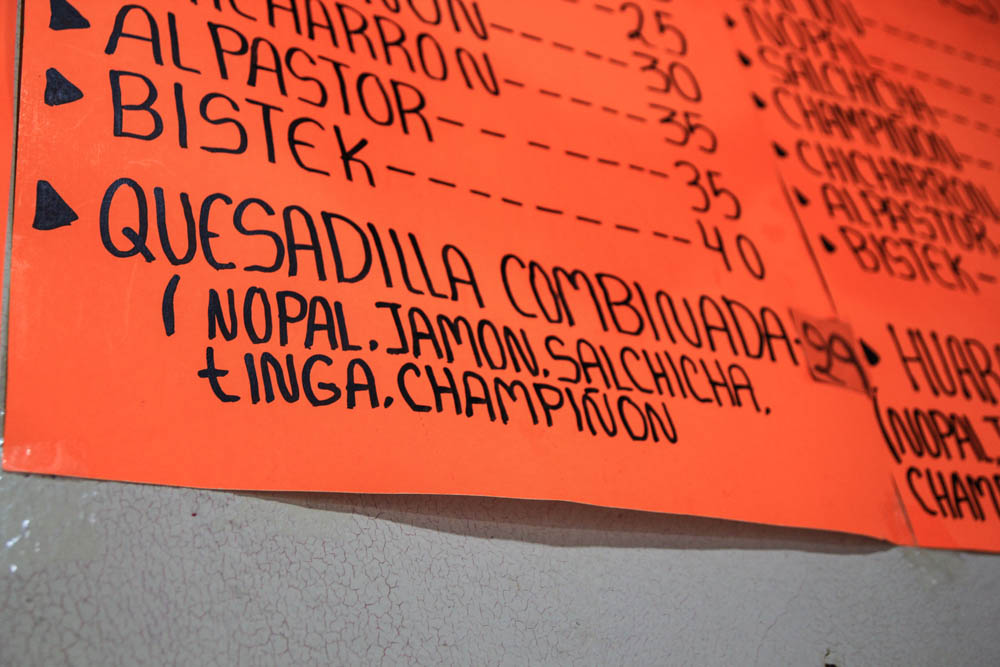 25
ÑON------30
CHARRON-----35
AL PASTOR------35
BISTEK---------40
QUESADILLA COMBINADA-
(NOPAL, JAMON, SALCHICHA,
tINGA, CHAMPIÑON
NOPAL
SALCHICHA
CHAMPIÑON
CHICHARRON
AL PASTOR
BISTEK-
HUAR
(NOPAL, J
CHAM